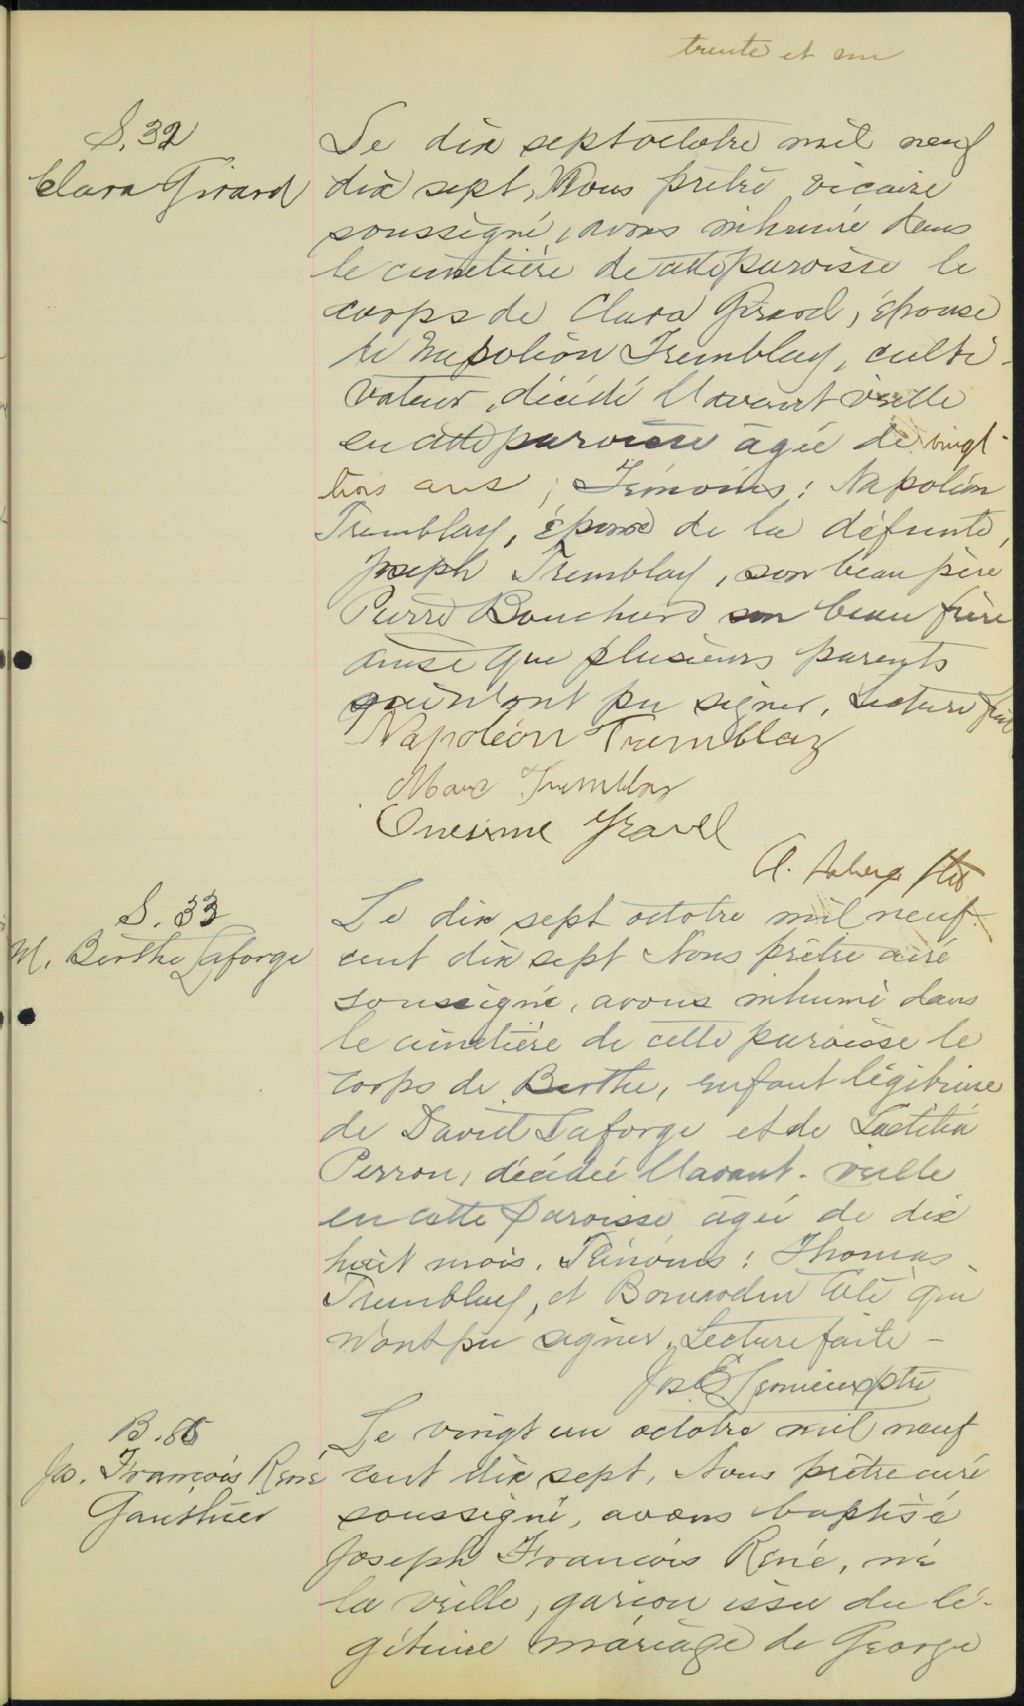 trente et un
S. 32
Clara Girard
Le dix sept octobre mil neuf
dix sept, Nous prêtre vicaire
soussigné, avons inhumé dans
le cimetière de cette paroisse le
corps de Clara Girard, épouse
de Napoléon Tremblay, culti-
vateur, décédé l'avant veille
en cette paroisse âgée de vingt-
trois ans; Témoins: Napoléon
Tremblay, époux de la défunte,
Joseph Tremblay, son beau père
Pierre Bouchard son beau frère
ainsi que plusieurs parents
qui n'ont pu signer. Lecture faite
Napoléon Tremblay
Tremblay
Onesime Gravel
A. ptre
S. 33
M. Berthe Laforge
Le dix sept octobre mil neuf
cent dix sept Nous prêtre curé
soussigné, avons inhumé dans
le cimetière de cette paroisse le
corps de Berthe, enfant légitime
de David Laforge et de Laetitia
Perron, décédée l'avant-veille
en cette paroisse âgée de dix
huit mois. Témoins: Thomas
Tremblay, et qui
n'ont pu signer. Lecture faite -
Jos E Lemieux ptre
B. 86
Jos. François René
Gauthier
Le vingt un octobre mil neuf
cent dix sept, Nous prêtre curé
soussigné, avons baptisé
Joseph François René, né
la veille, garçon issu du lé-
gitime mariage de George